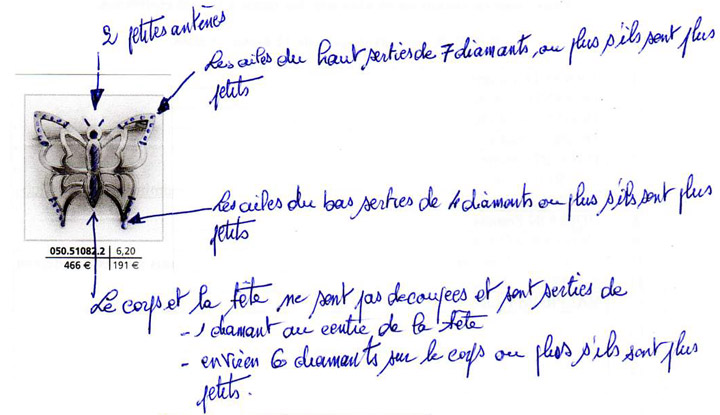 2 petites antènes
Les ailes du haut serties de 7 diamants, ou plus s'ils sont plus
petits
Les ailes du bas serties de 4 diamants ou plus s'ils sont plus
petits
050.51082.2 | 6,20
466 € | 191 €
Le corps et la tête ne sont pas decoupees et sont serties de
- 1 diamant au centre de la tête
- environ 6 diamants sur le corps ou plus s'ils sont plus
petits.